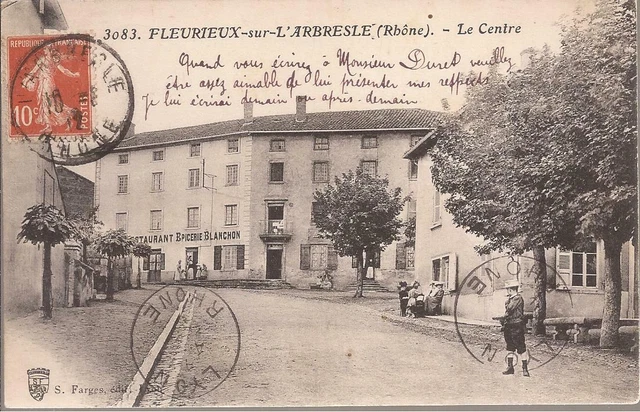 3083. FLEURIEUX-sur-L'ARBRESLE (Rhône). - Le Centre
Quand vous écrirez à Monsieur Duret veuillez
être assez aimable de lui présenter mes respects
Je lui écrirai demain ou après-demain
10c POSTES
RHONE
STAURANT EPICERIE BLANCHON
RHONE
LYON
S. Farges, édit.